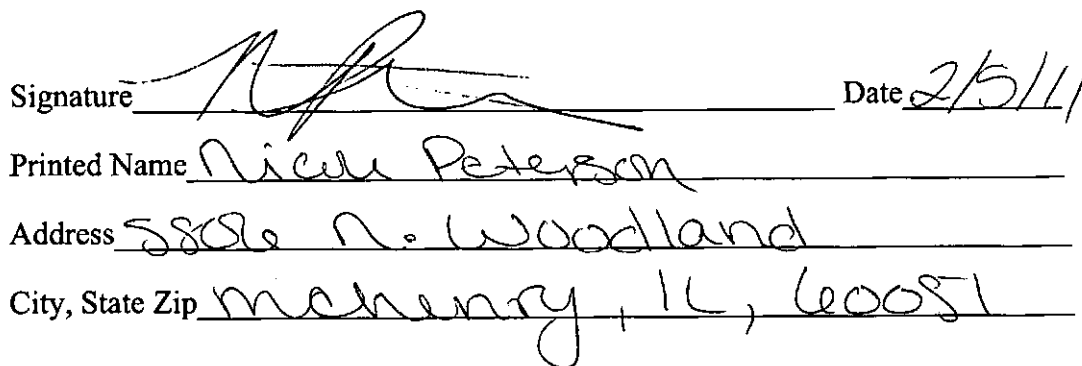 Signature Date 2/5/11
Printed Name Nicole Peterson
Address 5806 N. Woodland
City, State Zip McHenry, IL, 60051